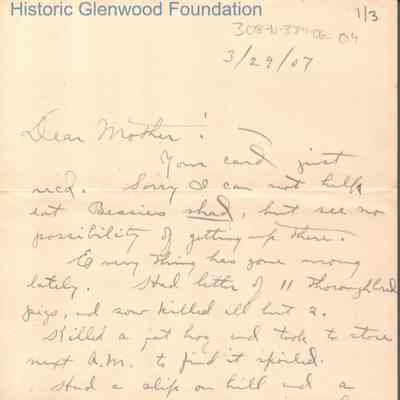 Historic Glenwood Foundation
1/3
3/29/07
Dear Mother!
Your card just
recd. Sorry I can not help
eat Bessies shad, but see no
possibility of getting up there.
Every thing has gone wrong
lately. Had litter of 11 thoroughbred
pigs, and sow killed all but 2.
Killed a fat hog and took to store
next A.M. to find it spoiled.
Had a slip on hill and a